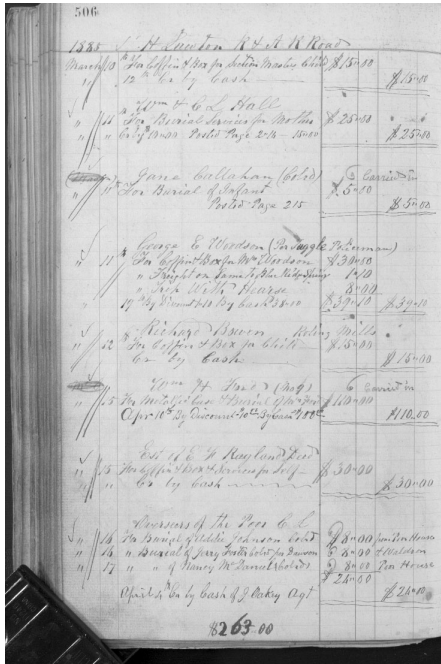 506
1885 J. H. Lawton R & A R Road
March 10 th For Coffin & Box for Section Masters Child $15-00
" 12 th Cr by Cash $15-00
Wm & C L Hall
" 11 " For Burial Services for Mother $25-00
" " Cr by 10-00 Posted Page 214 - 15-00 $25-00
Jane Callahan (Cold) Carried in
" 11 th For Burial of Infant $5-00
Posted Page 215 $5-00
George E Woodson (Per Tuggle)
" 11 th For Coffin & Box for Mr Woodson $30-00
" Freight on Same To Blue Ridge Springs 1-10
" Trip With Hearse 8-00
19 th By Discount 1-10 By Cash 38-00 $39-10 $39-10
Richard Bacon Mills
" 12 th For Coffin & Box for Child $15-00
Cr by Cash $15-00
Wm H (Neg) Carried in
" 15 For Metallic Case & Burial of $110-00
Apr 10th By Discount 10-00 By Cash 100-00 $110-00
Est of E F Ragland Died
" 15 For Coffin & Box & Services for Self $30-00
" " Cr by Cash $30-00
Overseers of the Poor C L
" 14 For Burial of Eddie Johnson Cold $8-00 from Pen House
" 16 " Burial of Jerry Foster Cold for Dawson $8-00
" 17 " " of Nancy McDaniel (Cold) $8-00 Pen House
$24-00
April 4th Cr by Cash of J. Oakey Agt $24-00
$263-00